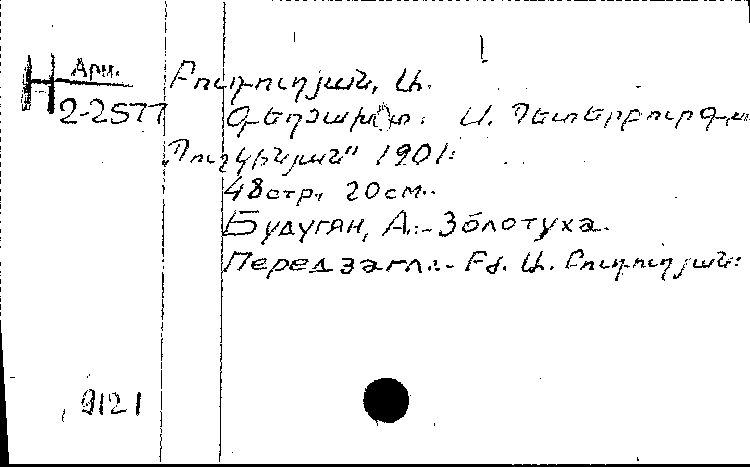 Арм.
Н
2-2577
Բուդուղյան, Ա.
Գեղձախտ. Ս. Պետերբուրգ
Պուշկինյան" 1901:
48стр, 20см.
Будугян, А.-Золотуха.
Перед загл.:- Բժ. Ա. Բուդուղյան:
9121